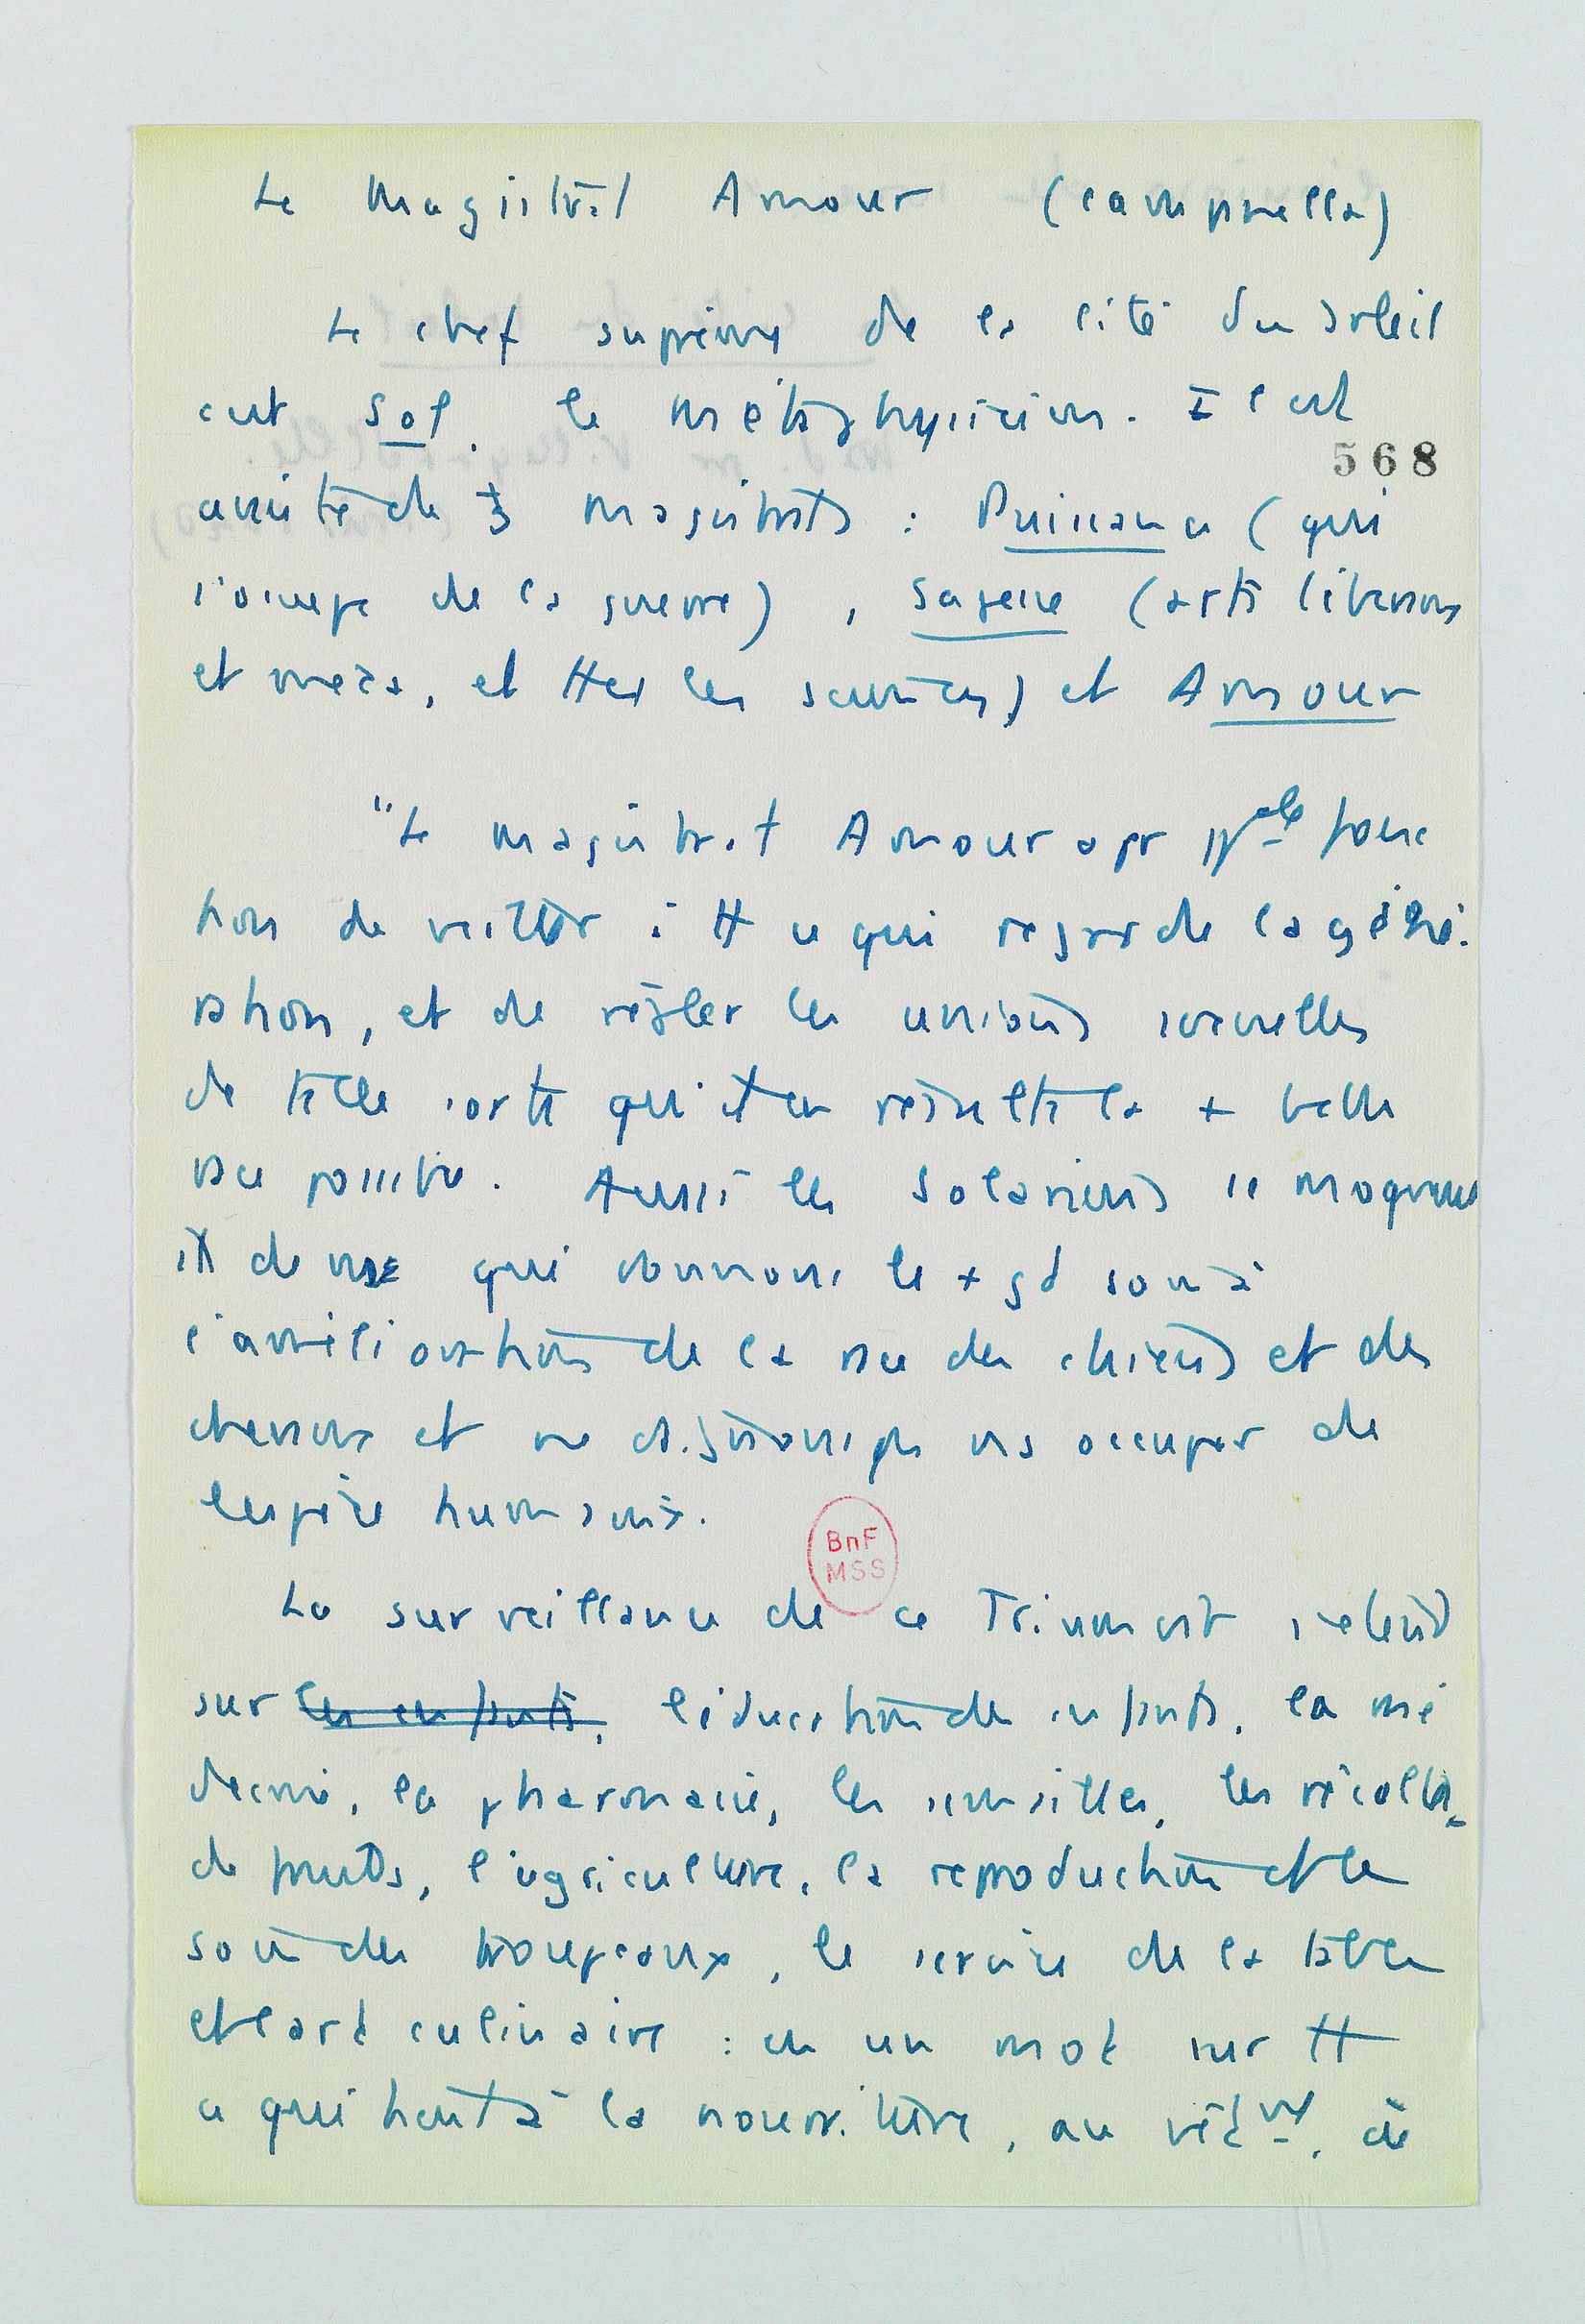 Le Magistrat Amour (Campanella)
Le chef suprême de la cité du Soleil
est Sol, le Métaphysicien. Il est
568
assisté de 3 magistrats : Puissance (qui
s'occupe de la guerre), Sagesse (arts libéraux
et méca, et ttes les sciences) et Amour
"Le magistrat Amour a pr ppale fonc
tion de veiller à tt ce qui regarde la géné-
ration, et de régler les unions sexuelles
de telle sorte qu'il en résulte la + belle
race possible. Aussi les Solariens se moquent
ils de nous qui donnons le + gd soin à
l'amélioration de la race des chiens et des
chevaux et ne daignons pas ns occuper de
l'espèce humaine.
La surveillance de ce Triumvirat s'étend
sur les enfants, l'éducation des enfants, la mé
decine, la pharmacie, les semailles, les récoltes
de fruits, l'agriculture, la reproduction et le
soin des troupeaux, le service de la table
et l'art culinaire : en un mot sur tt
ce qui tient à la nourriture, au vêtmt, à
BnF
MSS